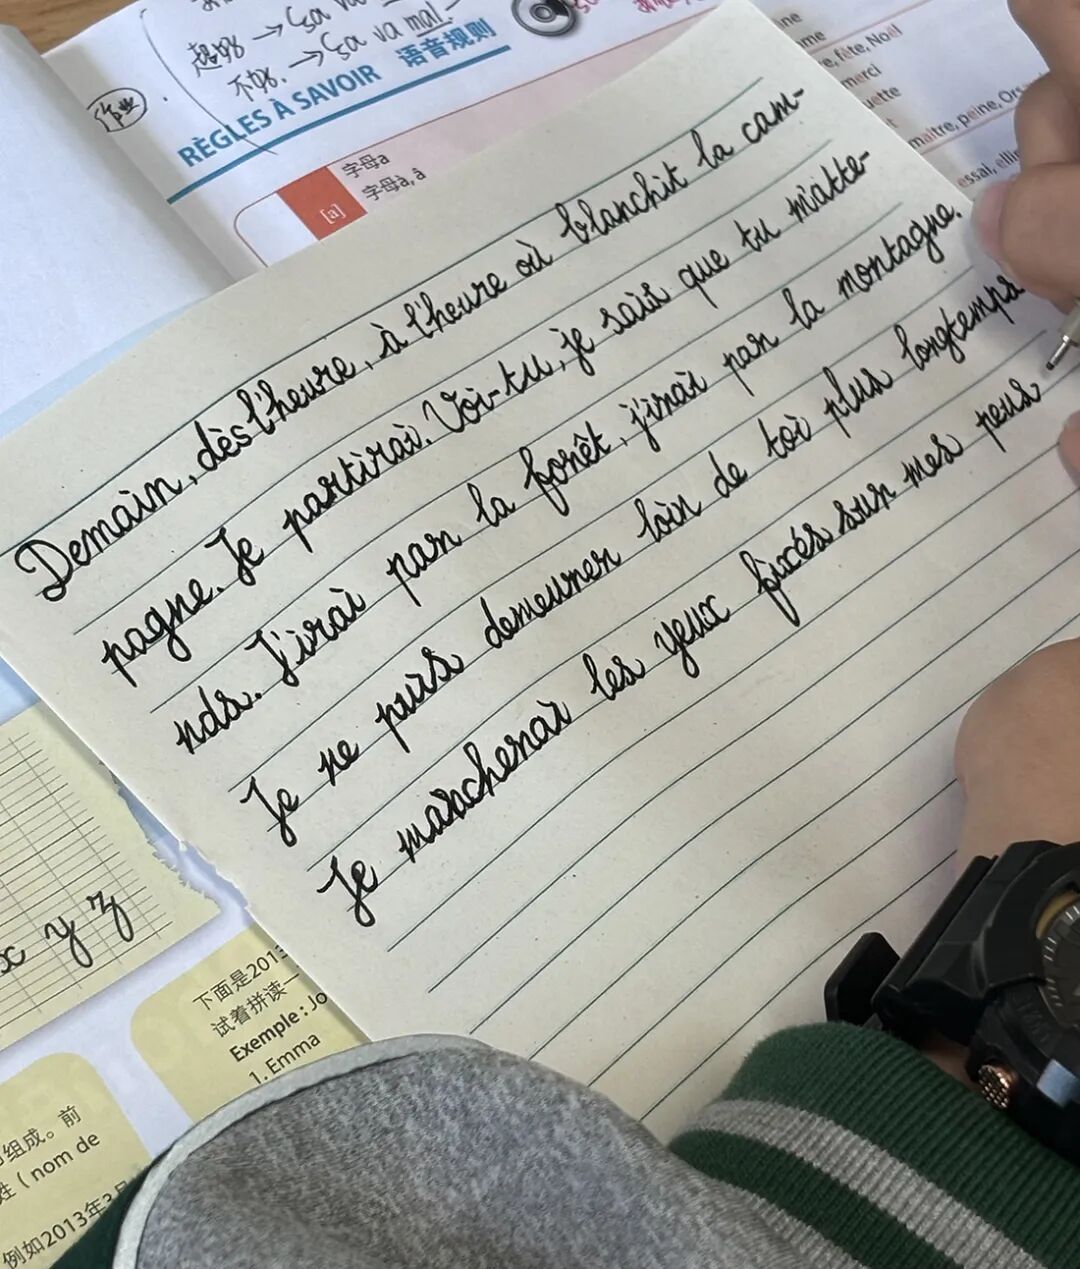 超好 → Ça va
不好. → Ça va mal.
作业
RÈGLES À SAVOIR 语音规则
[a]
字母a
字母à, â
ine
me
e, fête, Noël
merci
uette
t
maître, peine, Ors
essai, elle
Demain, dès l'heure, à l'heure où blanchit la cam-
pagne. Je partirai. Voi-tu, je sais que tu m'atte-
nds. J'irai par la forêt, j'irai par la montagne.
Je ne puis demeurer loin de toi plus longtemps
Je marcherai les yeux fixés sur mes peus
x y z
下面是2013
试着拼读一
Exemple : Jo
1. Emma
组成。前
姓 ( nom de
例如2013年3月